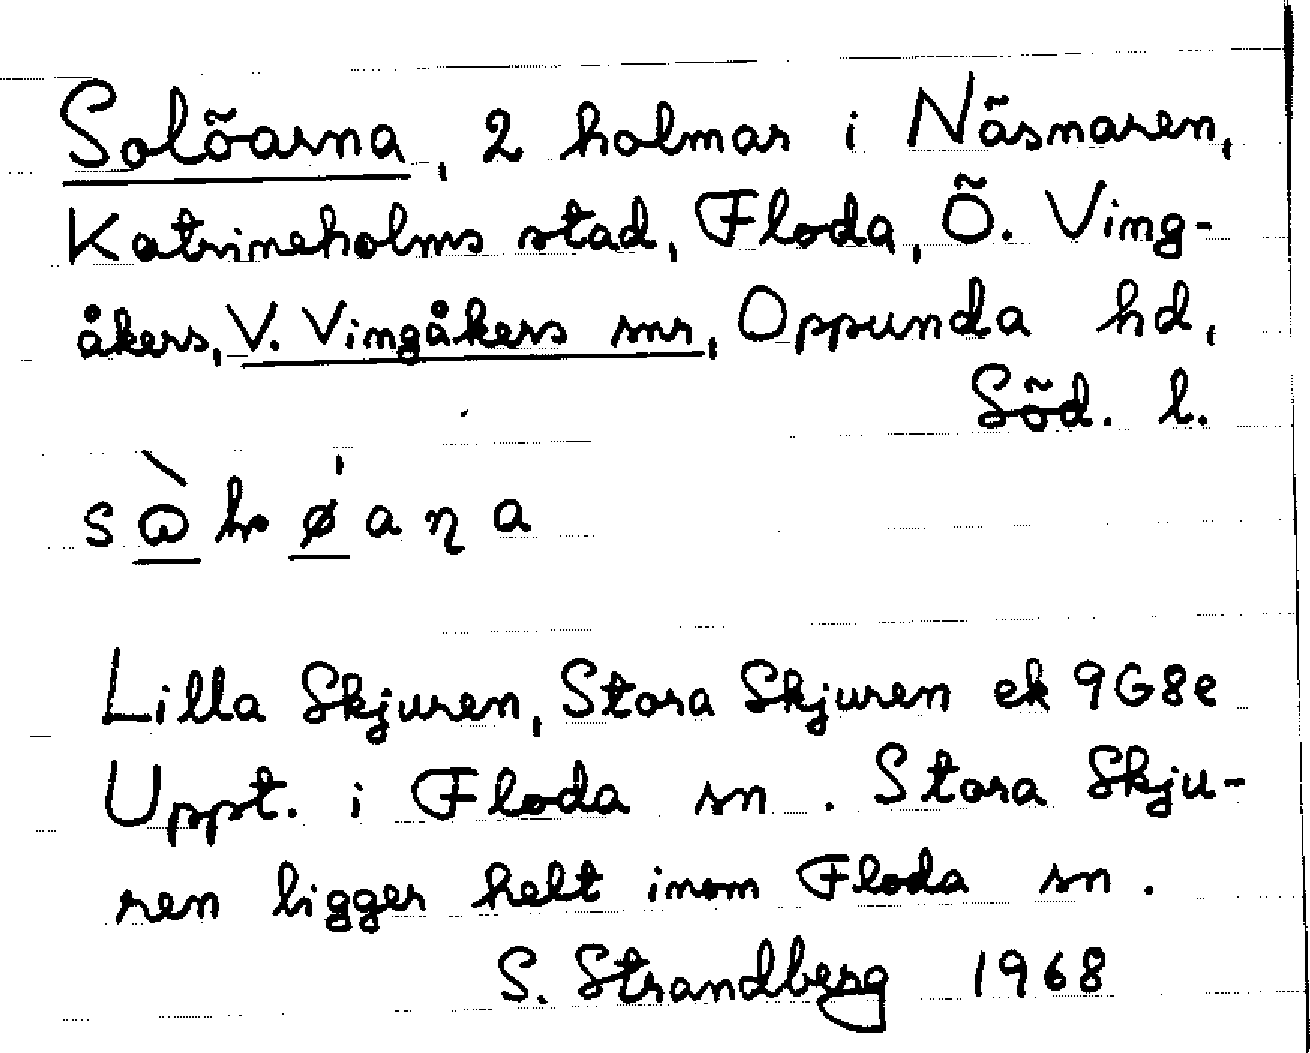 Solöarna, 2 holmar i Näsnaren,
Katrineholms stad, Floda, Ö. Ving-
åkers, V. Vingåkers snr, Oppunda hd,
Söd. l.
Lilla Skjuren, Stora Skjuren ek 9G8e
Uppt. i Floda sn. Stora Skju-
ren ligger helt inom Floda sn.
S. Strandberg 1968